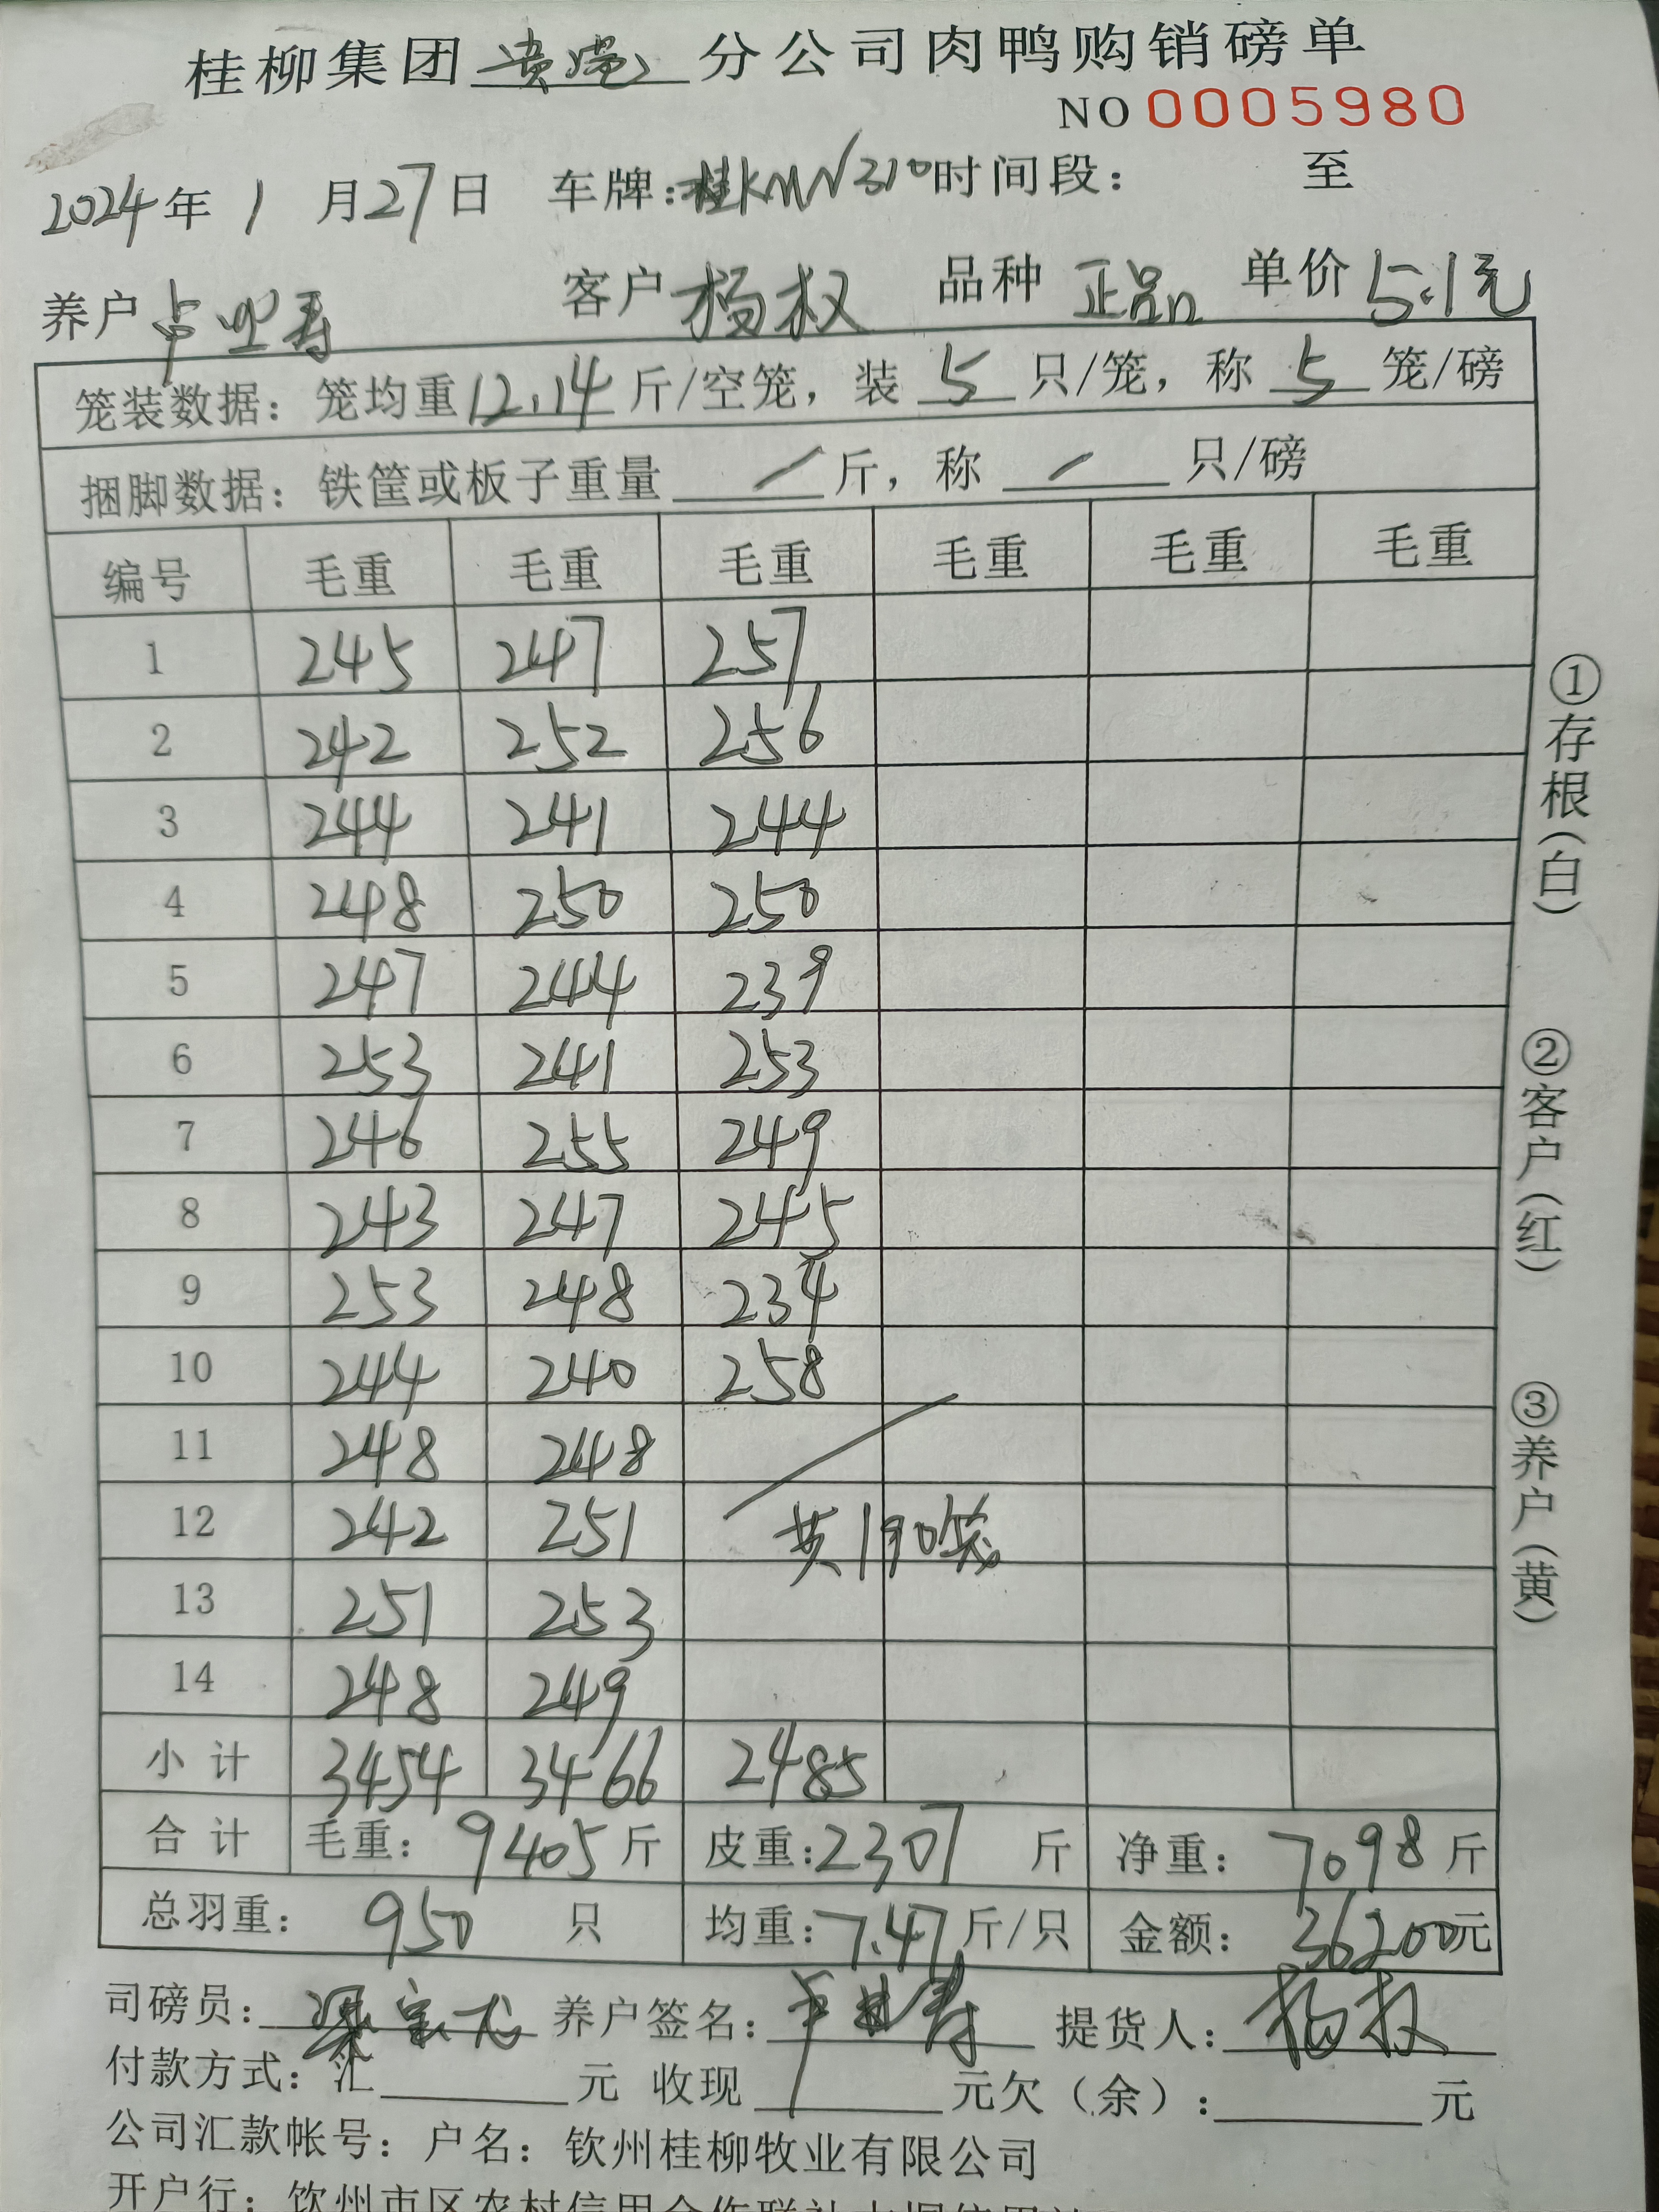 桂柳集团贵港分公司肉鸭购销磅单
NO 0005980
2024年1月27日 车牌:桂KMN310时间段: 至
养户 客户杨权 品种 正品 单价 5.1元
笼装数据: 笼均重12.14斤/空笼, 装5只/笼, 称5笼/磅
捆脚数据: 铁筐或板子重量 / 斤, 称 / 只/磅
编号 毛重 毛重 毛重 毛重 毛重 毛重
1 245 247 257
2 242 252 256
3 244 241 244
4 248 250 250
5 247 244 239
6 253 241 253
7 246 255 249
8 243 247 245
9 253 248 234
10 244 240 258
11 248 248
12 242 251 共190笼
13 251 253
14 248 249
小计 3454 3466 2485
合计 毛重: 9405斤 皮重:2307 斤 净重: 7098斤
总羽重: 950 只 均重:7.47斤/只 金额: 36200元
司磅员: 养户签名: 提货人:杨权
付款方式: 汇 元 收现 元欠(余): 元
公司汇款帐号: 户名: 钦州桂柳牧业有限公司
开户行: 钦州市区农村信用合作联社
①存根(白)
②客户(红)
③养户(黄)